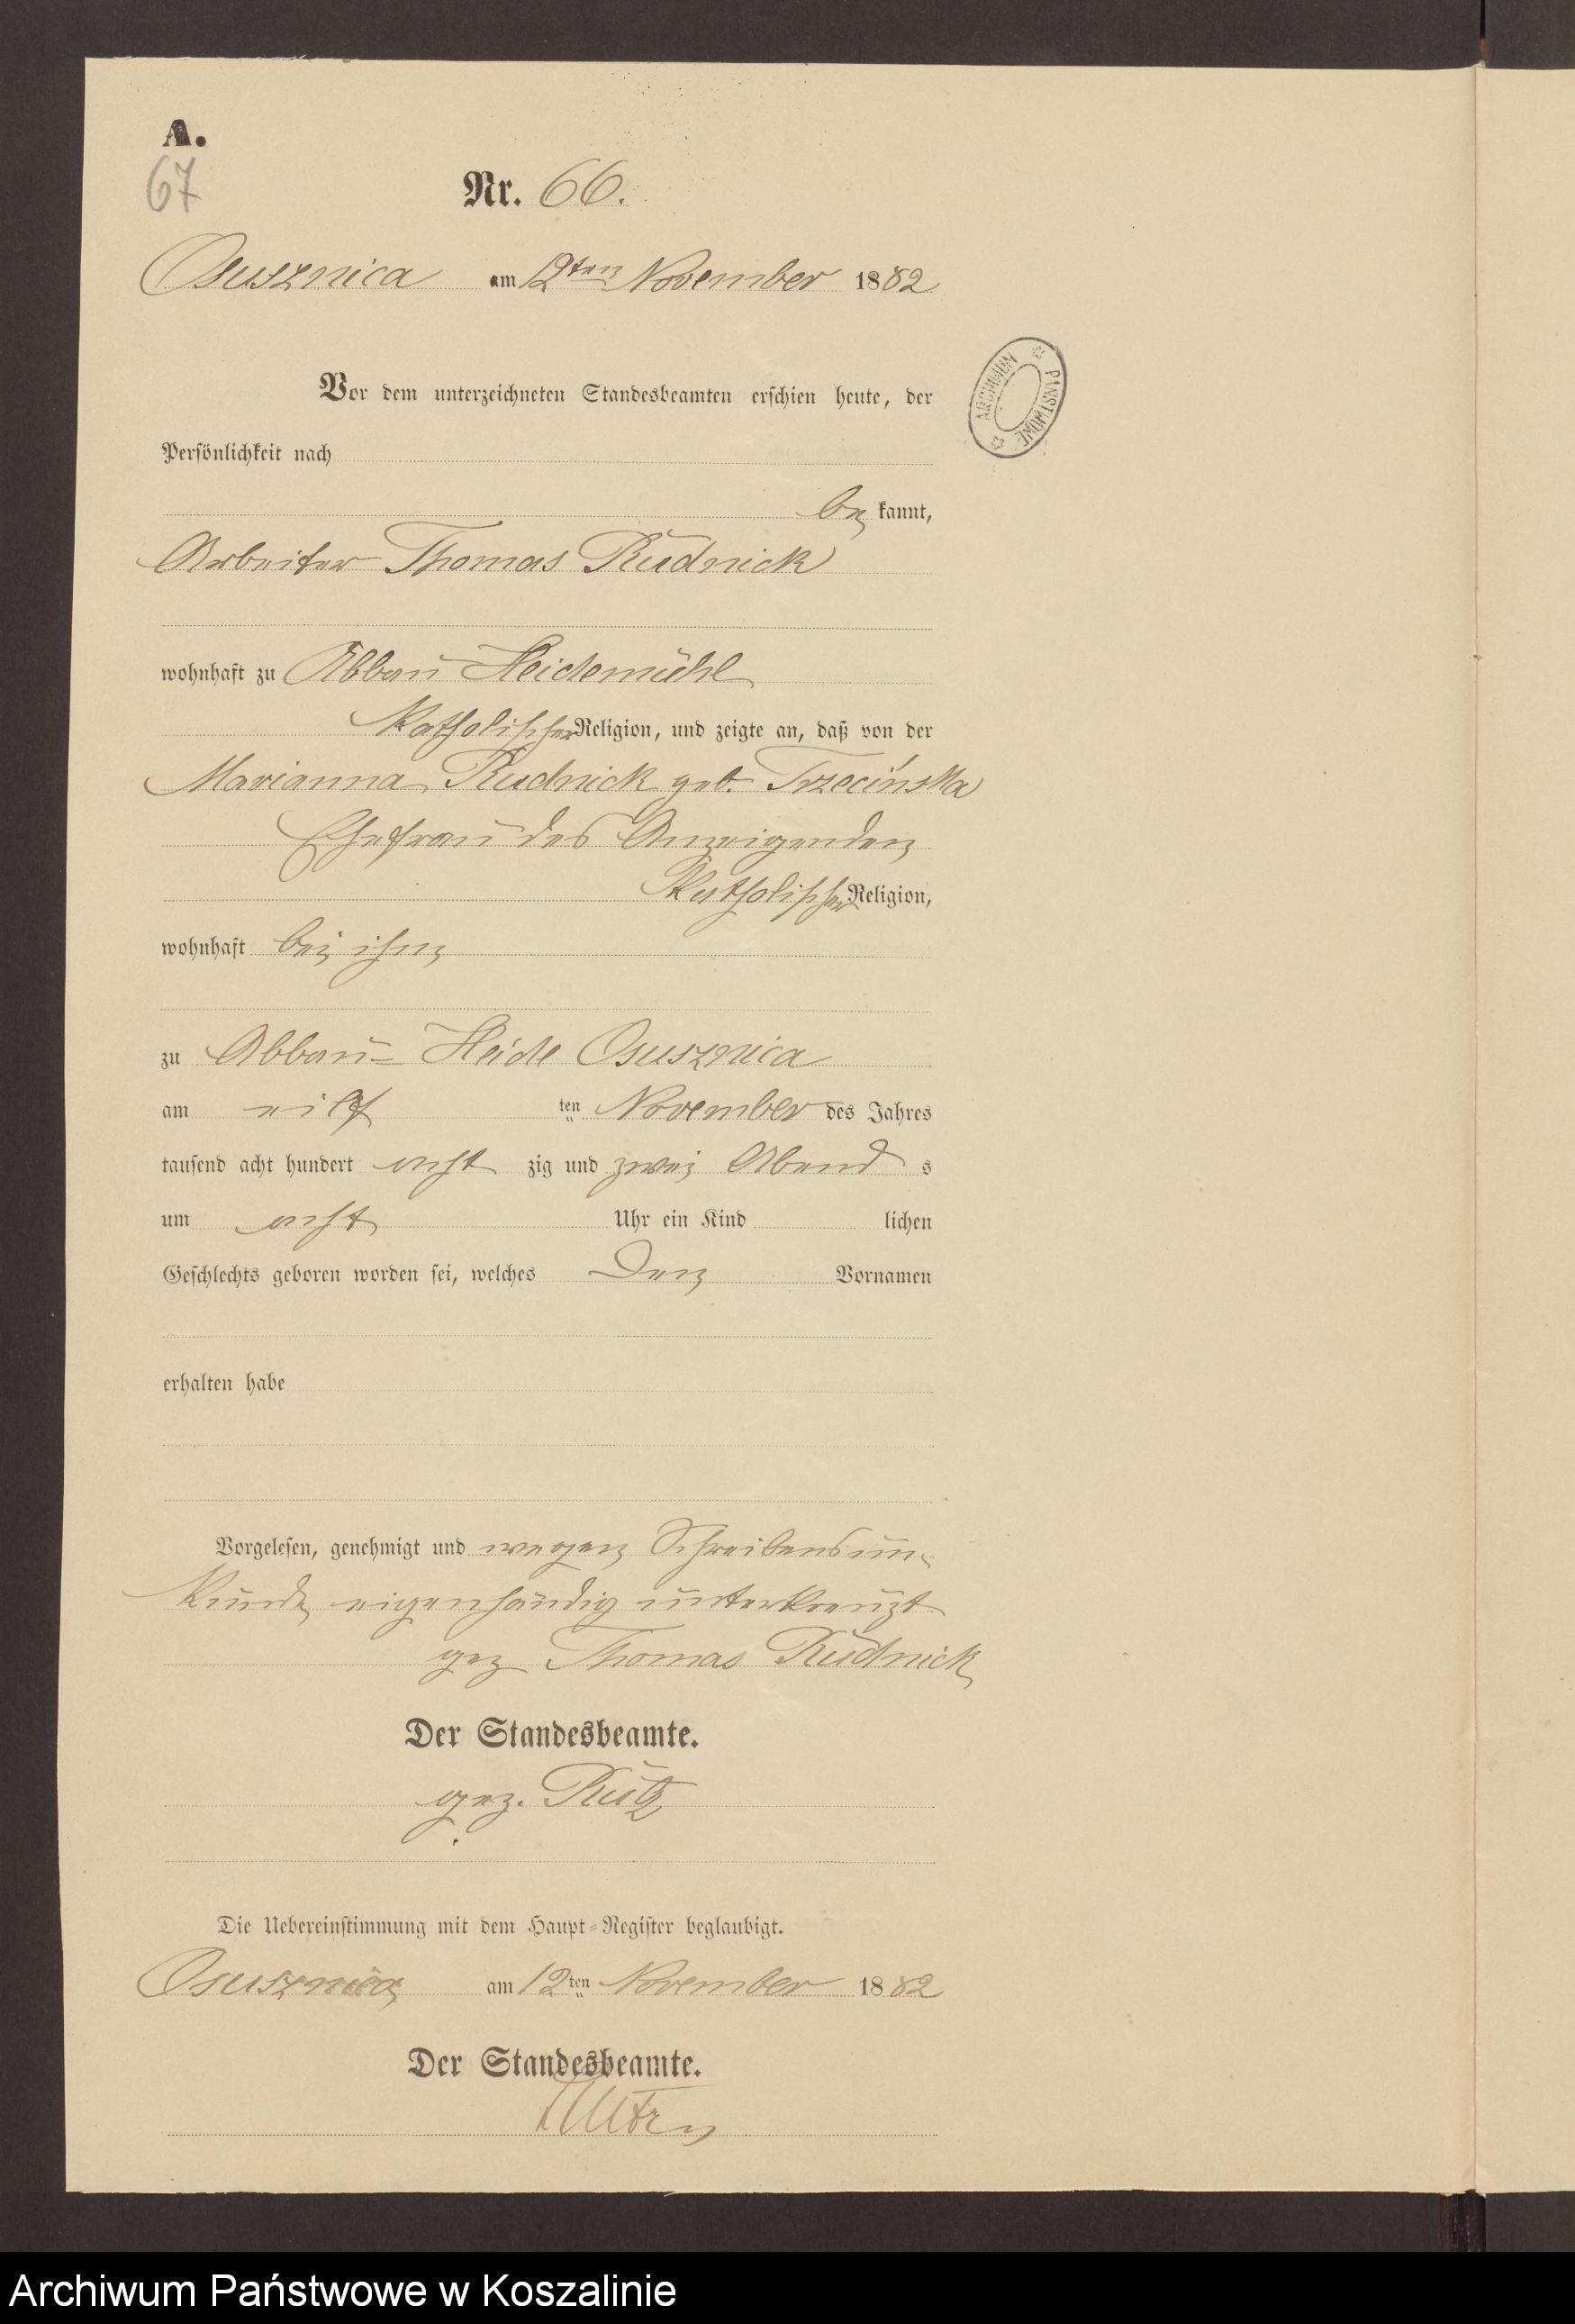 A.
67
Nr. 66.
Osusznica am 12ten November 1882
Vor dem unterzeichneten Standesbeamten erschien heute, der
Persönlichkeit nach
be kannt,
Arbeiter Thomas Rudnick
wohnhaft zu Abbau Heidemühl
Katholischer Religion, und zeigte an, daß von der
Marianna Rudnick geb. Trzecińska
Ehefrau des Anzeigenden
Katholischer Religion,
wohnhaft bei ihm
zu Abbau-Heide Osusznica
am eilf ten November des Jahres
tausend acht hundert acht zig und zwei Abend s
um acht Uhr ein Kind lichen
Geschlechts geboren worden sei, welches Den Vornamen
erhalten habe
Vorgelesen, genehmigt und wegen Schreibensun-
kunde eigenhändig unterkreuzt
gez Thomas Rudnick
Der Standesbeamte.
gez. Rutz
Die Uebereinstimmung mit dem Haupt-Register beglaubigt.
Osusznica am 12ten November 1882
Der Standesbeamte.
ARCHIWUM PAŃSTWOWE
Archiwum Państwowe w Koszalinie